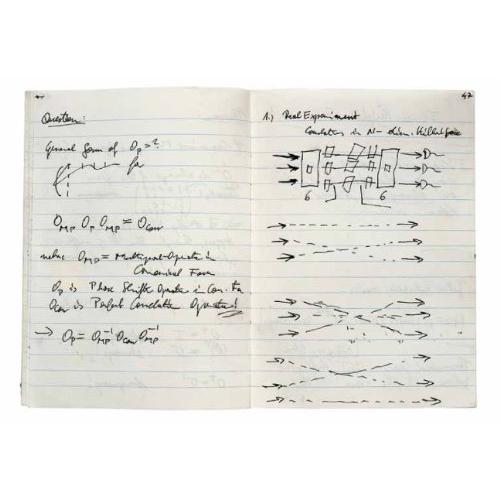 Question:
General form of Op = ?
OMP Op OMP = Ocorr
where OMP = Multiport-Operator in
Canonical Form
Op is Phase Shift Operator in Can. Fo
Ocorr is Perfect Correlation Operator
→ Op = OMP⁻¹ Ocorr OMP⁻¹
42
1.) Real Experiment
Correlations in N-dim. Hilbert space
6 6